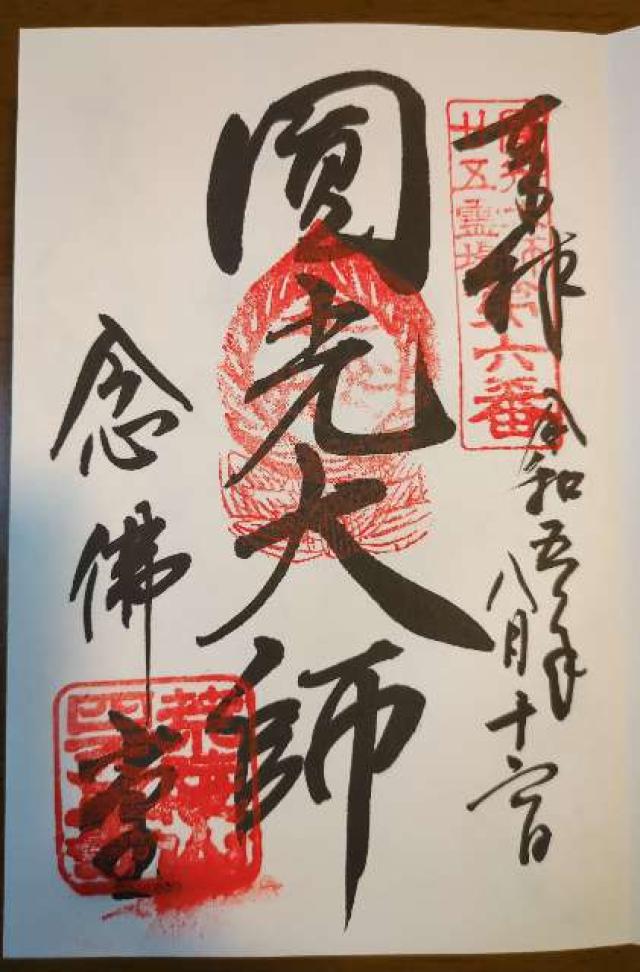 奉拝
令和五年
八月十六日
圓光大師
廿五霊場
第六番
圓光大師
念佛堂